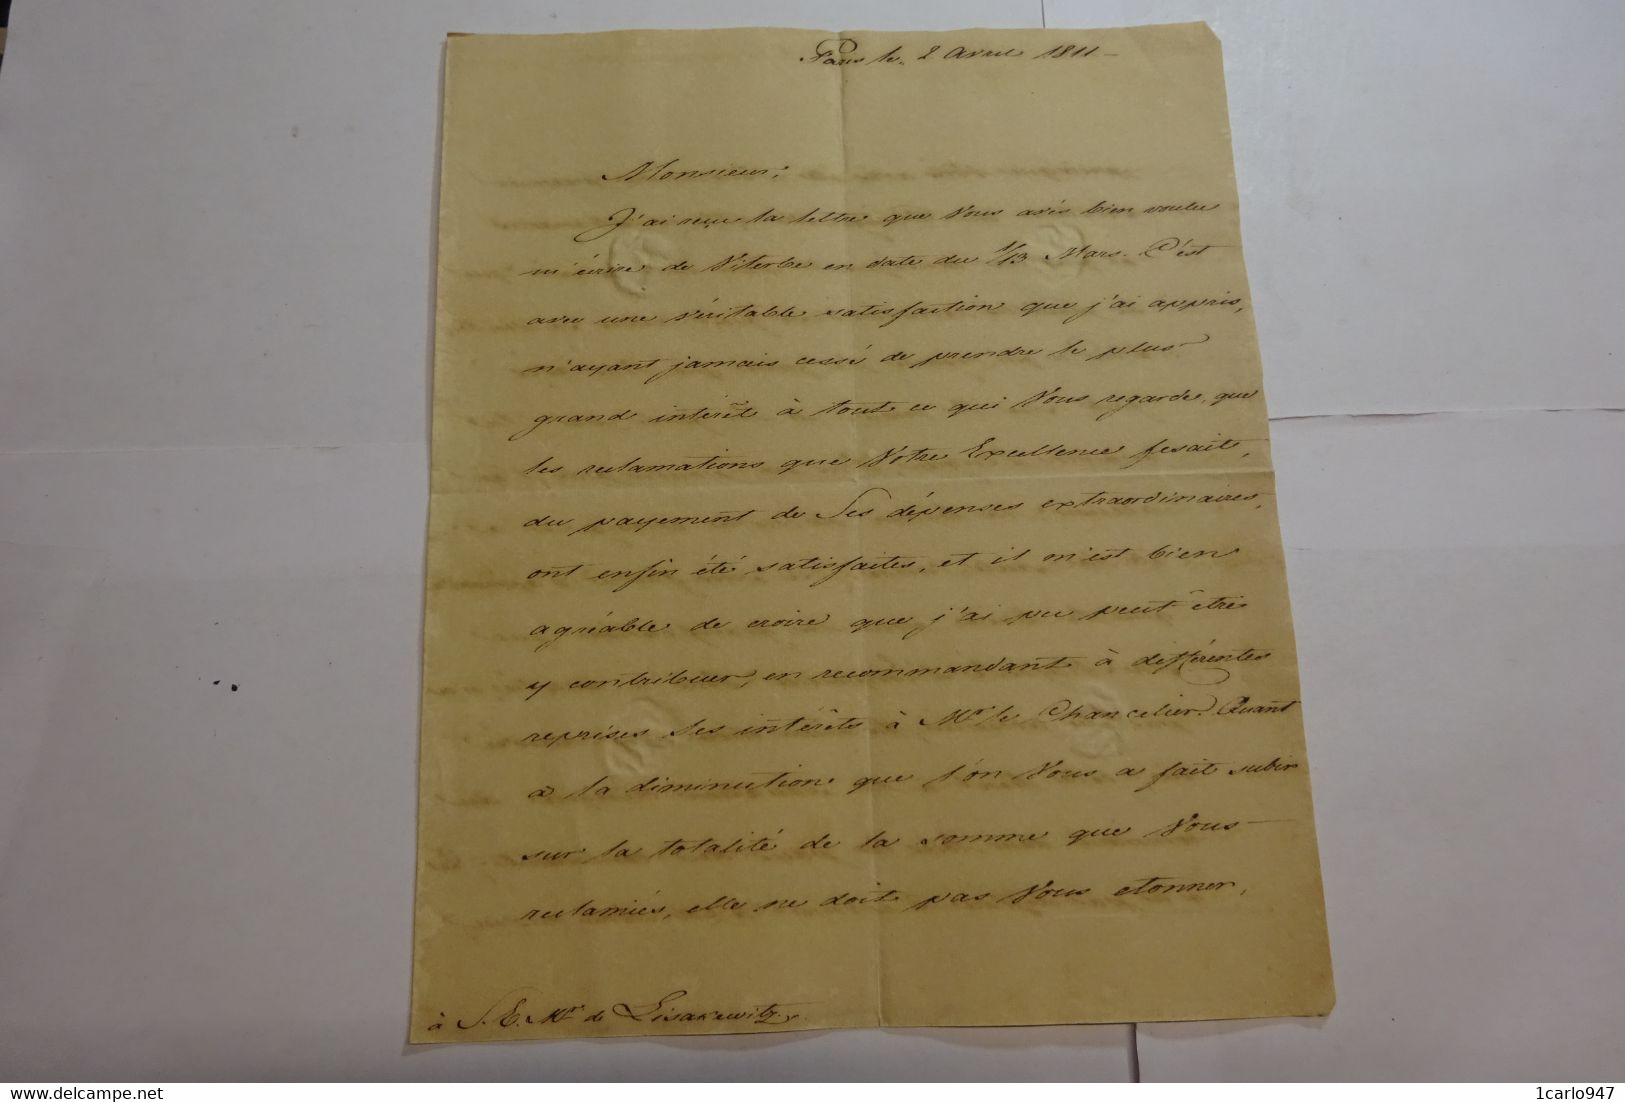 Paris le 2 Avril 1811 -
Monsieur,
J'ai reçu la lettre que Vous avés bien voulu
m'écrire de Viterbe en date du 1/13 Mars. C'est
avec une véritable satisfaction que j'ai appris,
n'ayant jamais cessé de prendre le plus
grand intérêt à tout ce qui Vous regarde, que
les reclamations que Votre Excellence fesait,
du payement de Ses dépenses extraordinaires,
ont enfin été satisfaites, et il m'est bien
agréable de croire que j'ai pu peut être
y contribuer, en recommandant à différentes
reprises Ses intérêts à Mr. le Chancelier. Quant
à la diminution que l'on Vous a fait subir
sur la totalité de la somme que Vous
reclamiés, elle ne doit pas Vous etonner,
à S. E. Mr de Lisakewitz.
delcampe.net
1carlo947